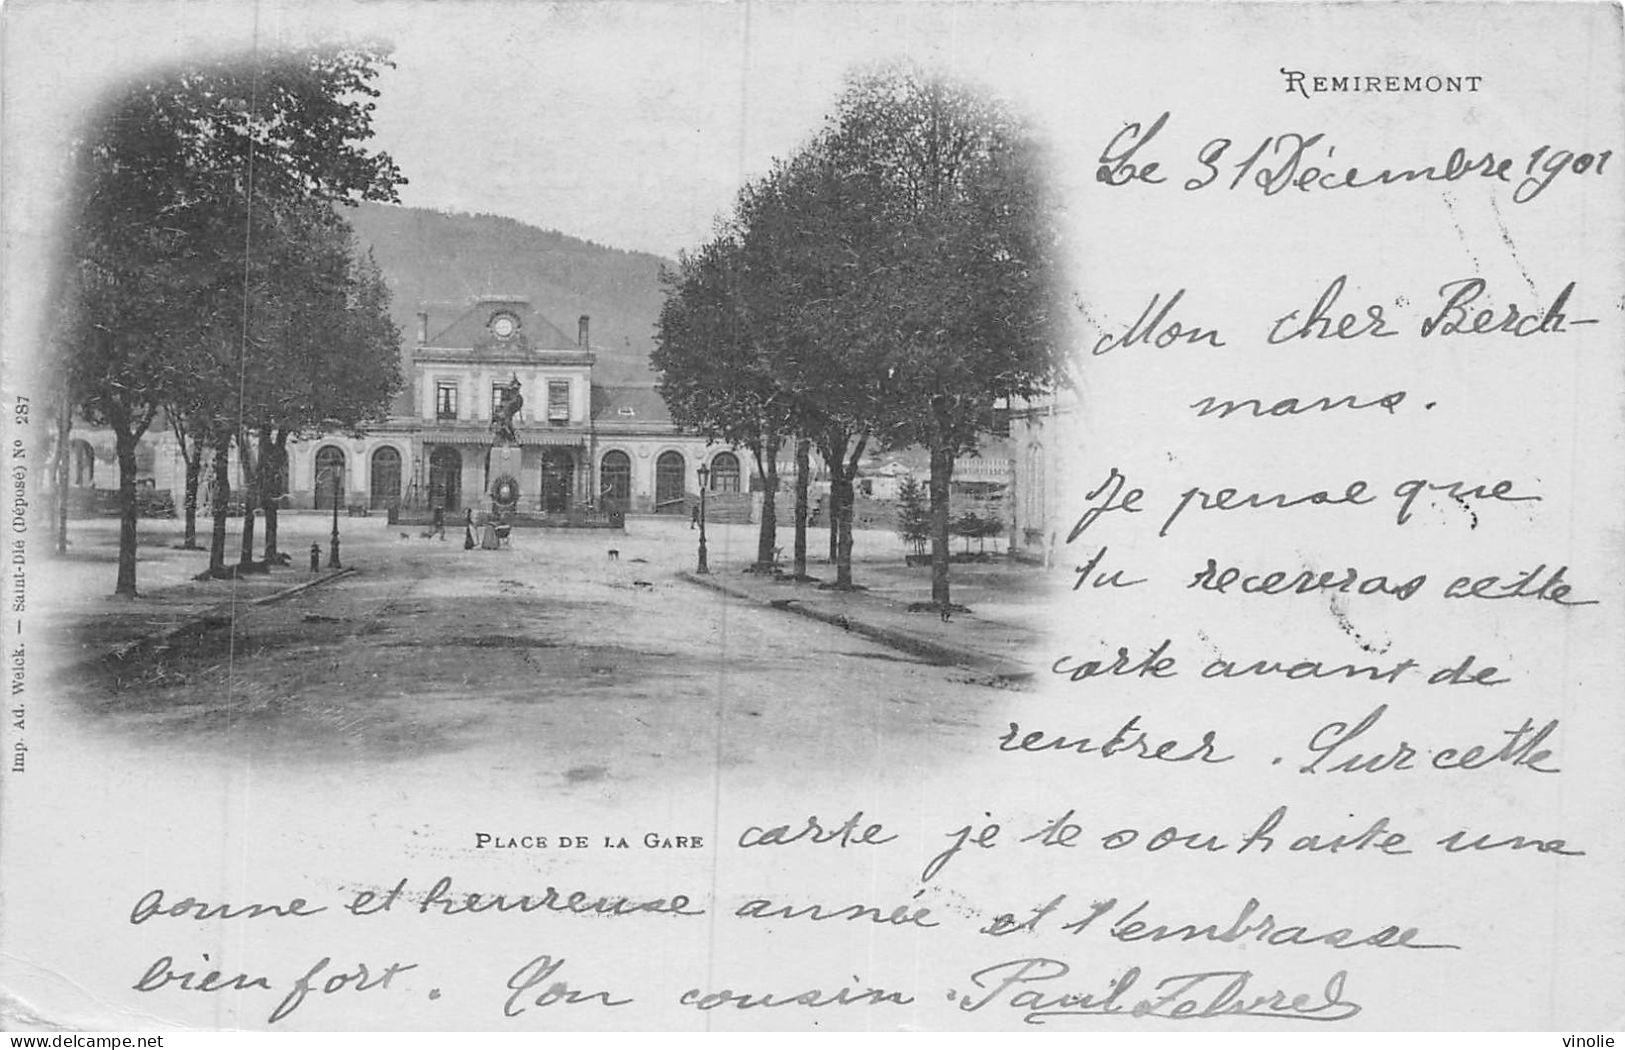 REMIREMONT
Le 31 Décembre 1901
Mon cher Berch-
mans.
Je pense que
tu recevras cette
carte avant de
rentrer. Sur cette
PLACE DE LA GARE
carte je te souhaite une
bonne et heureuse année et t'embrasse
bien fort. Ton cousin Paul
Imp. Ad. Weick. — Saint-Dié (Déposé) Nº 287
www.delcampe.net
vinolie